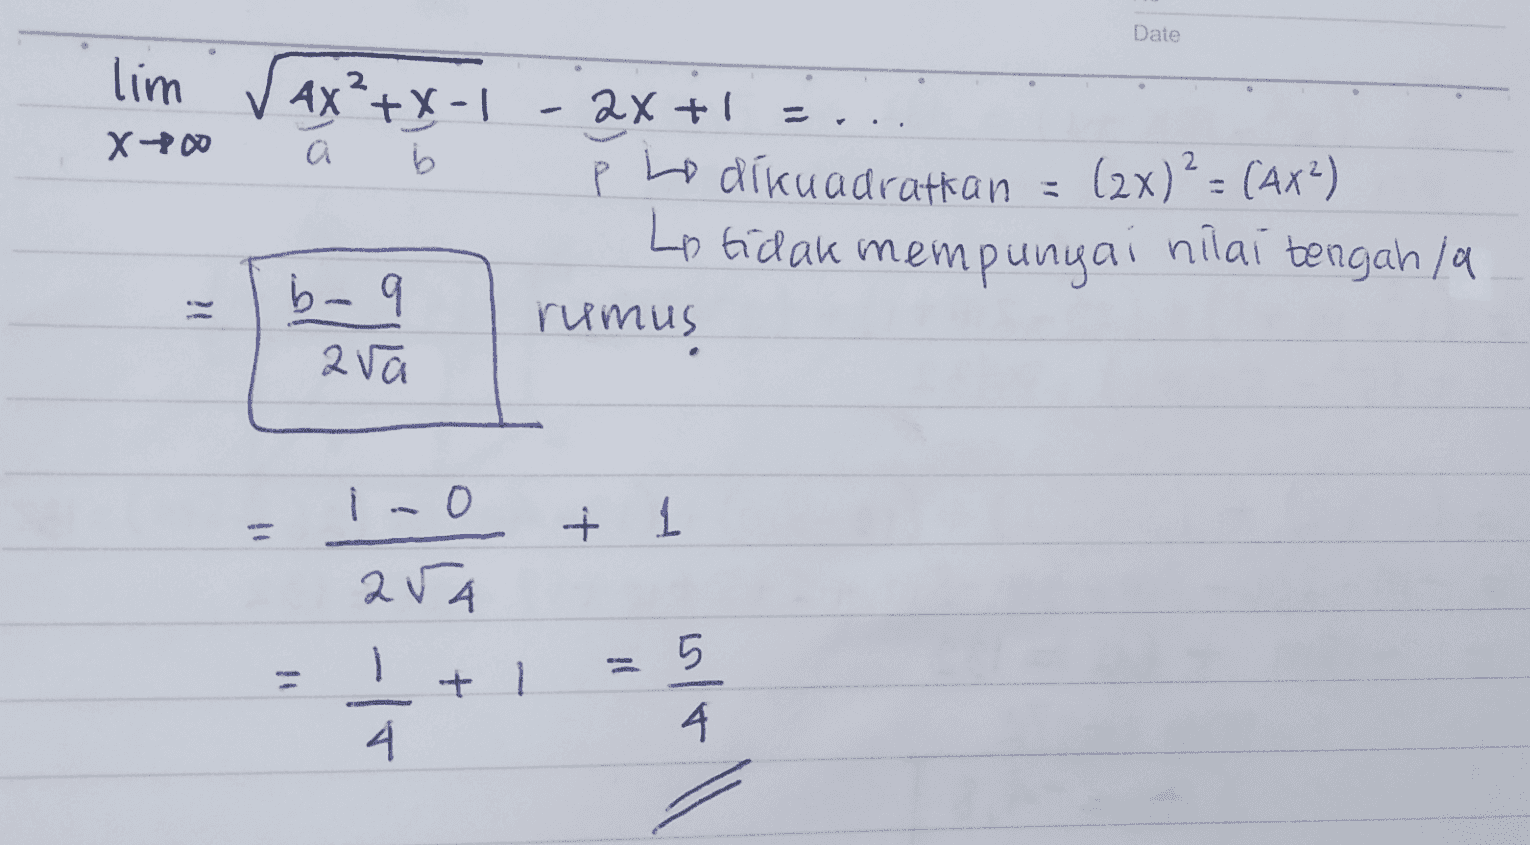 Date
lim x→∞ √(4x²+x-1) - 2x + 1 = ....
a b p ↳ dikuadratkan = (2x)² = (4x²)
↳ tidak mempunyai nilai tengah/q
= (b-q)/(2√a) rumus.
= (1-0)/(2√4) + 1
= 1/4 + 1 = 5/4